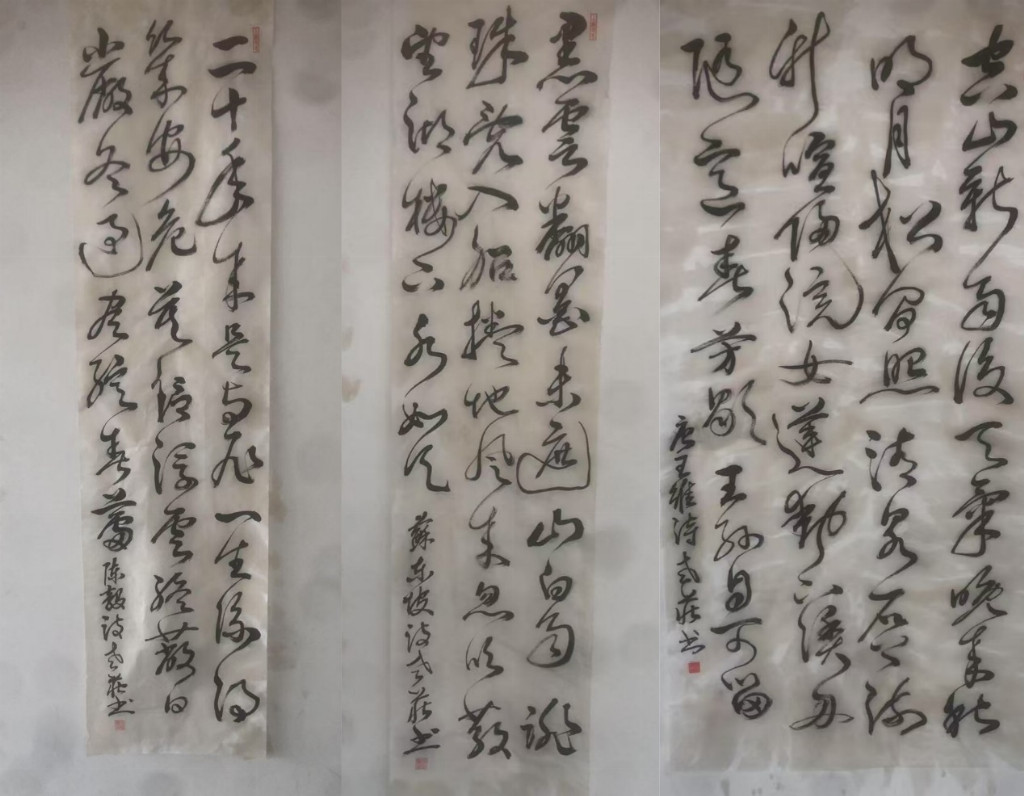 二十年来是与非一生系得
幾安危莫道浮雲終蔽日
嚴冬过尽绽春蕾
陈毅诗
莊书
黑雲翻墨未遮山白雨跳
珠乱入船捲地风来忽吹散
望湖楼下水如天
蘇东坡诗
莊书
空山新雨後天氣晚来秋
明月松间照清泉石上流
竹喧归浣女莲動下渔舟
随意春芳歇王孙自可留
唐王维诗
莊书